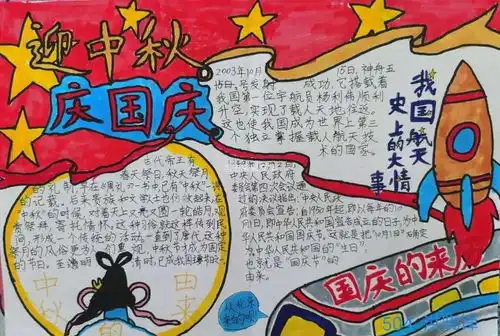 迎中秋
庆国庆
2003年10月15日,神舟五
号发射成功,它搭载着
我国第一位宇航员杨利伟顺利
升空,实现了载人天地往返。
这也是我国成为世界上第三
个独立掌握载人航天技
术的国家。
我国航天
史上的大情
事
古代帝王有
春天祭日,秋天祭月
的礼制,早在《周礼》一书中已有"中秋"一词
的记载。后来贵族和文人
中秋"的时候,对着天上又亮又圆一轮皓月,观
赏祭拜,寄托情怀,这种习俗就这样传到民
间,形成一个传统的活动。直到了唐代,这种
祭月的风俗更为人们重视,中秋节才成为固定
的节日。
中秋
的
由来
中央人民政府
委员会第四次会议通
过的决议指出:中央人民政
府委员会宣告:自1950年起,即以每年的10
月1日,即中华人民共和国宣告成立的日子,为中
华人民共和国国庆节。这就是把"10月1日"确定
为中华人民共和国的"生日",
也就是"国庆节"的
由来。
国庆的来